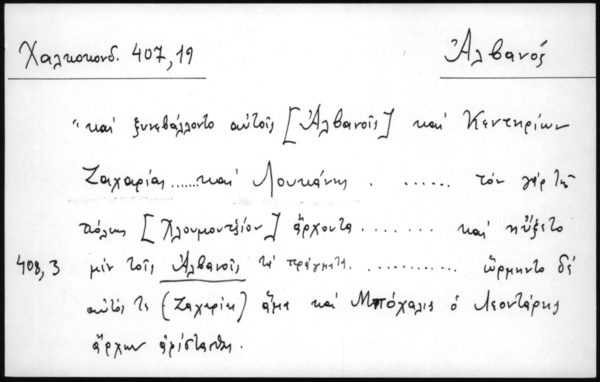 Χαλκοκονδ. 407,19
Ἀλβανός
"καὶ ξυνεβάλλοντο αὐτοῖς [Ἀλβανοῖς] καὶ Κεντηρίων
Ζαχαρίας ...... καὶ Λουκάνης . ...... τὸν γὰρ τῆς
πόλεως [Χλουμουτζίου] ἄρχοντα ....... καὶ ηὔξετο
408,3 μὲν τοῖς Ἀλβανοῖς τὰ πράγματα ............ ὥρμηντο δέ
αὐτός τε (Ζαχαρίας) ἅμα καὶ Μπόχαλις ὁ Λεοντάρης
ἄρχων